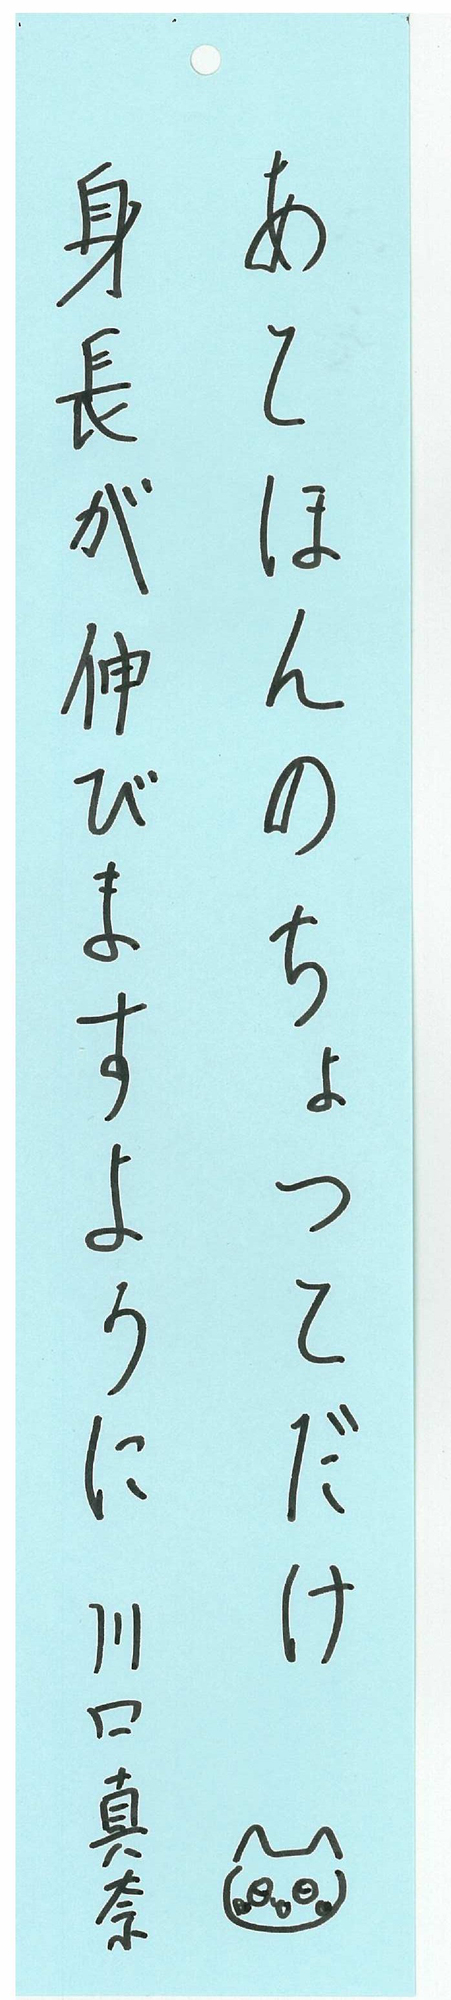 あてほんのちょつてだけ
身長が伸びますように 川口真奈